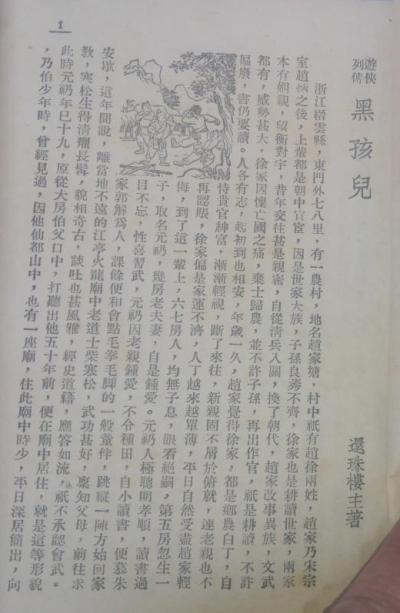 1
遊俠列傳 黑孩兒
還珠樓主著
浙江縉雲縣，東門外七八里，有一農村，地名趙家塘，村中祇有趙徐兩姓，趙家乃宋宗
室趙炳之後，上輩都是朝中官宦，因是世家大族，子孫良莠不齊，徐家也是耕讀世家，兩家
本有姻親，望衡對宇，昔年交往甚是親密，自從淸兵入關，換了朝代，趙家改事異族，文武
都有，威勢甚大，徐家因懷亡國之痛，棄士歸農，並不許子孫，再出作官，祇是耕讀，不許
偏廢，書仍要讀。人各有志，起初到也相安，年歲一久，趙家覺得徐家，都是鄉農白丁，自
恃貴官門富，漸漸輕視，斷了來往，新親固不屑於俯就，連老親也不
再認賬，徐家偏是家運不濟，人丁越來越單薄，平日自然受盡趙家輕
侮，到了這一輩上，六七房人，均無子息，眼看絕嗣，第五房忽生一
子，取名元礽，幾房老夫妻，自是鍾愛。元礽人極聰明孝順，讀書過
目不忘，性喜習武，元礽因老親鍾愛，不令種田，自小讀書，便慕朱
家郭解爲人，課餘便和會點毛拳毛脚的一般童伴，跳縱一陣方始回家
安歇，這年聞說，離當地不遠的江亭火龍廟中老道士柴寒松，武功甚好，稟知父母，前往求
敎，寒松生得淸癯長髯，貌相奇古，談吐也甚風雅，經史道籍，應答如流，祇不承認會武。
此時元礽年已十九，原從大房伯父口中，打聽出他五十年前，便在廟中居住，就是這等形貌
，乃伯少年時，曾經見過，因他仙都山中，也有一座廟，住此廟中時少，平日深居簡出，向